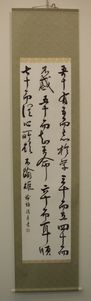 吾十有五而志於学三十而立四十而
不惑五十而知天命六十而耳順
七十而從心所欲不踰矩